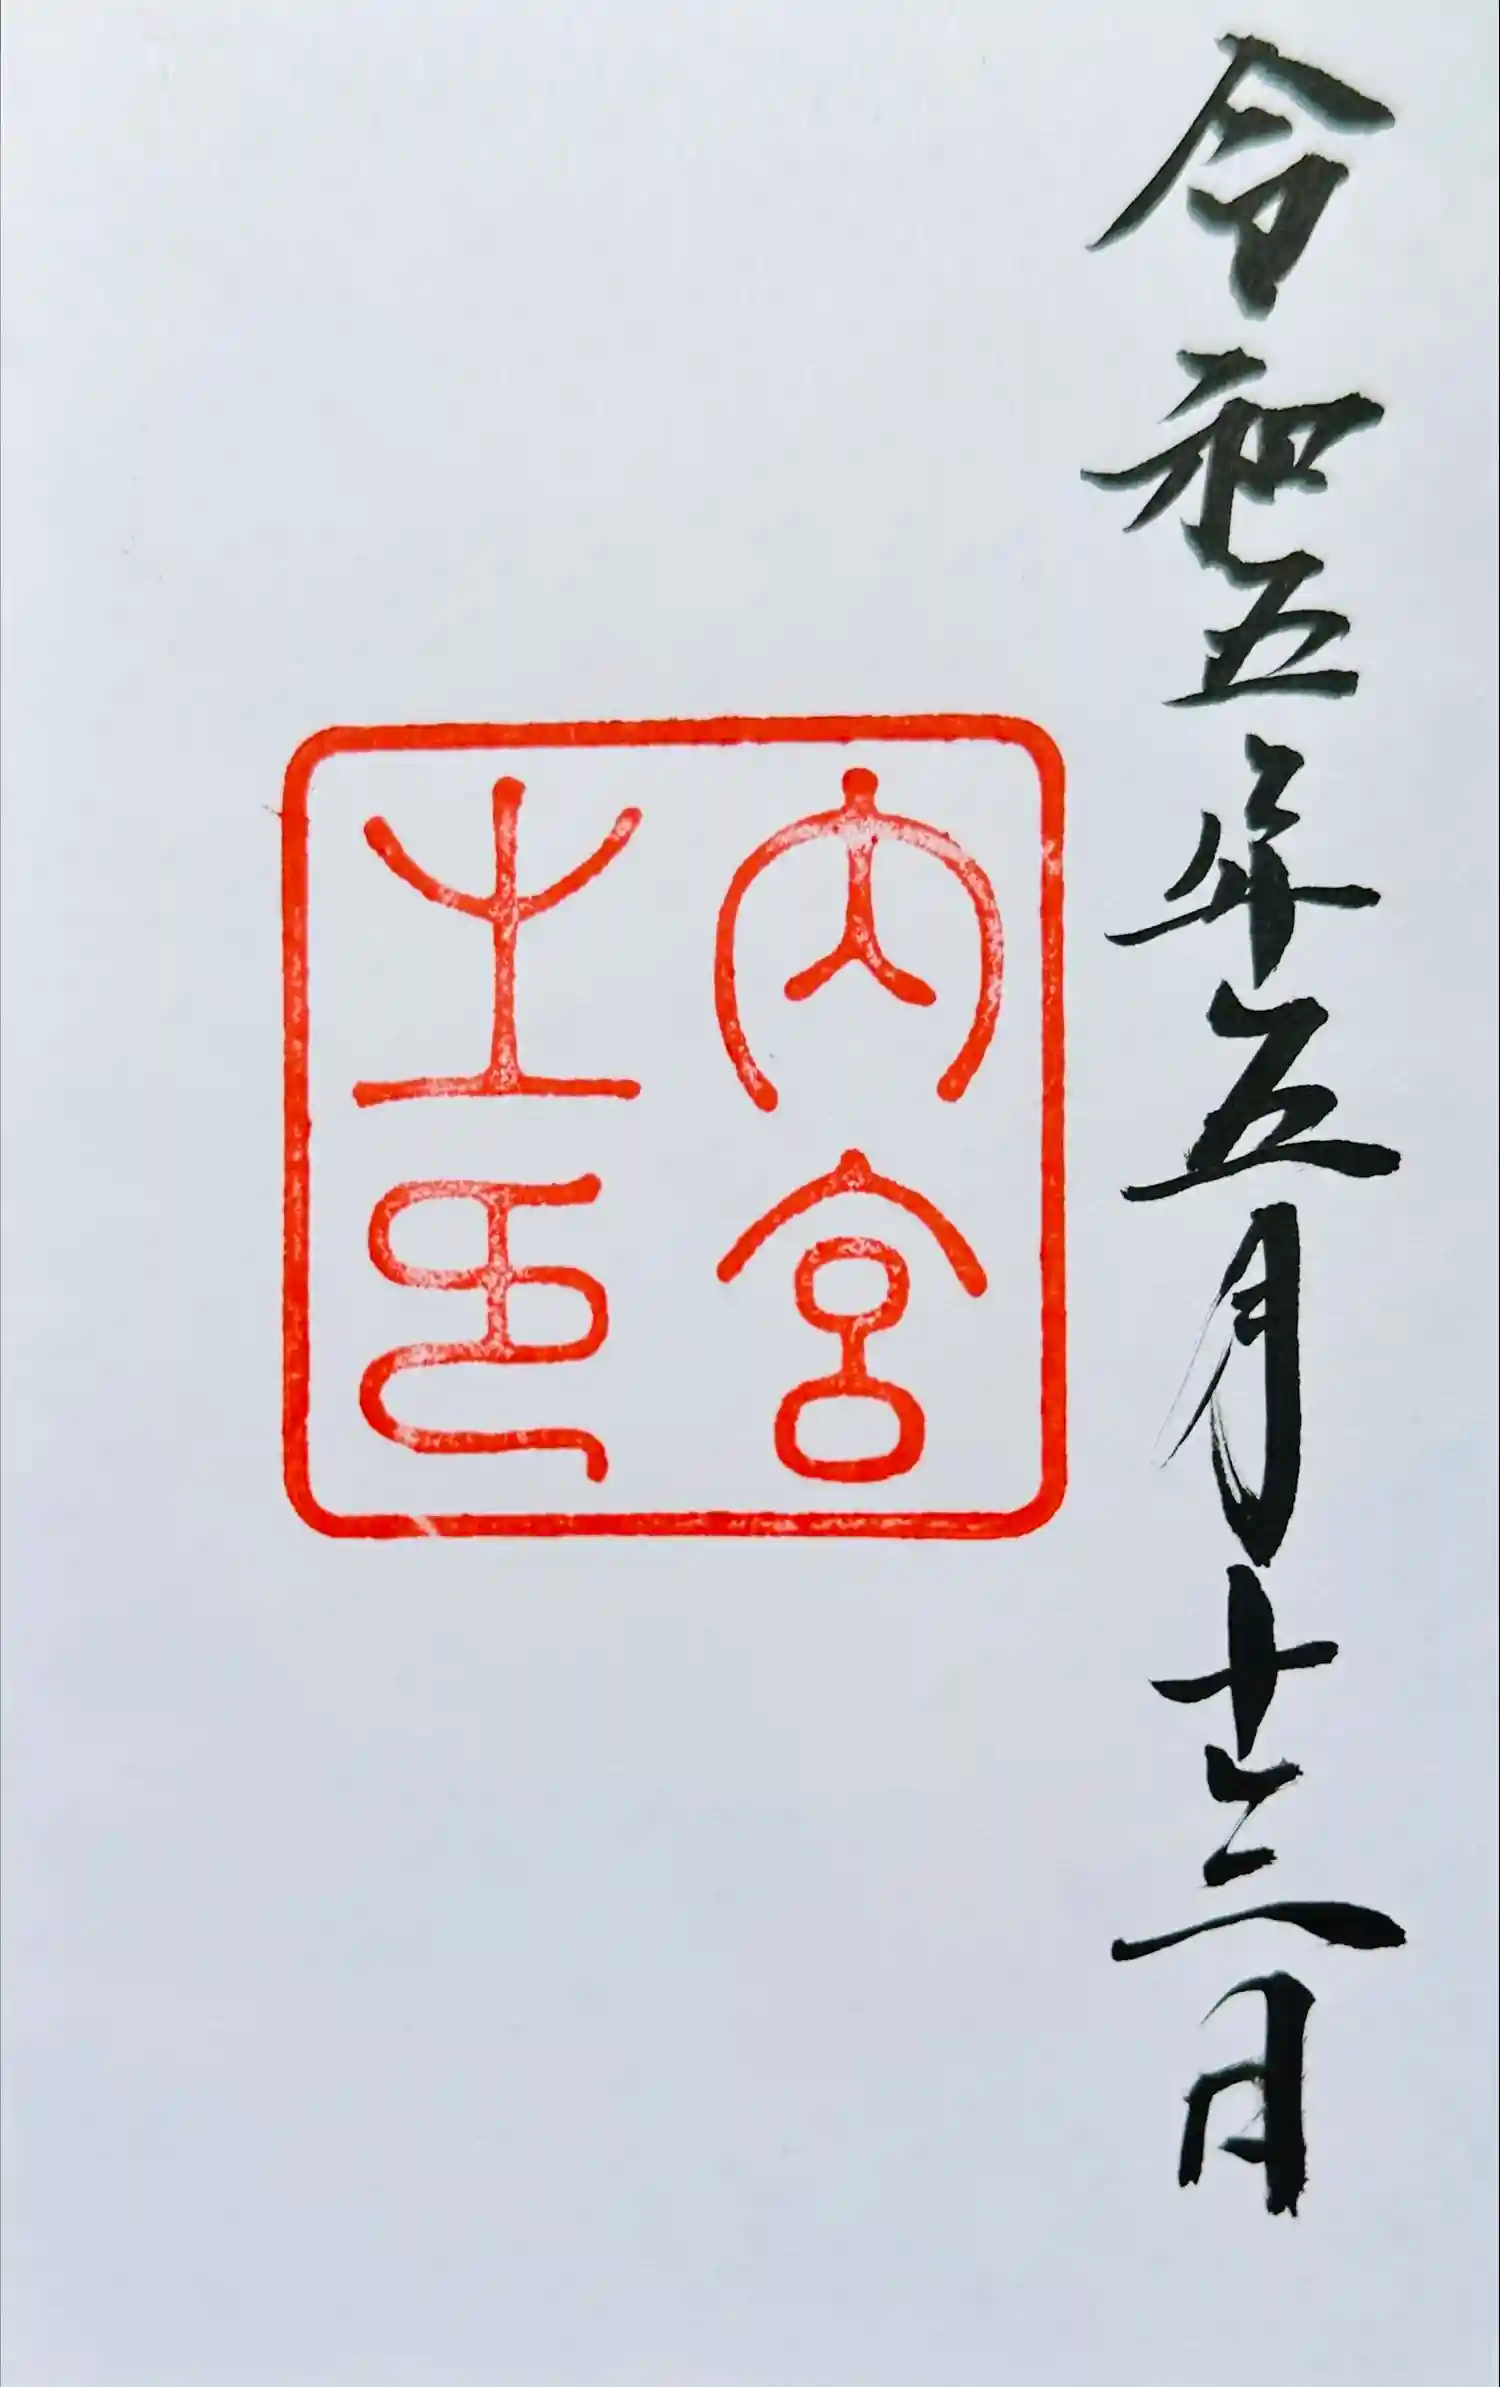 令和五年五月十三日
内宮
之印